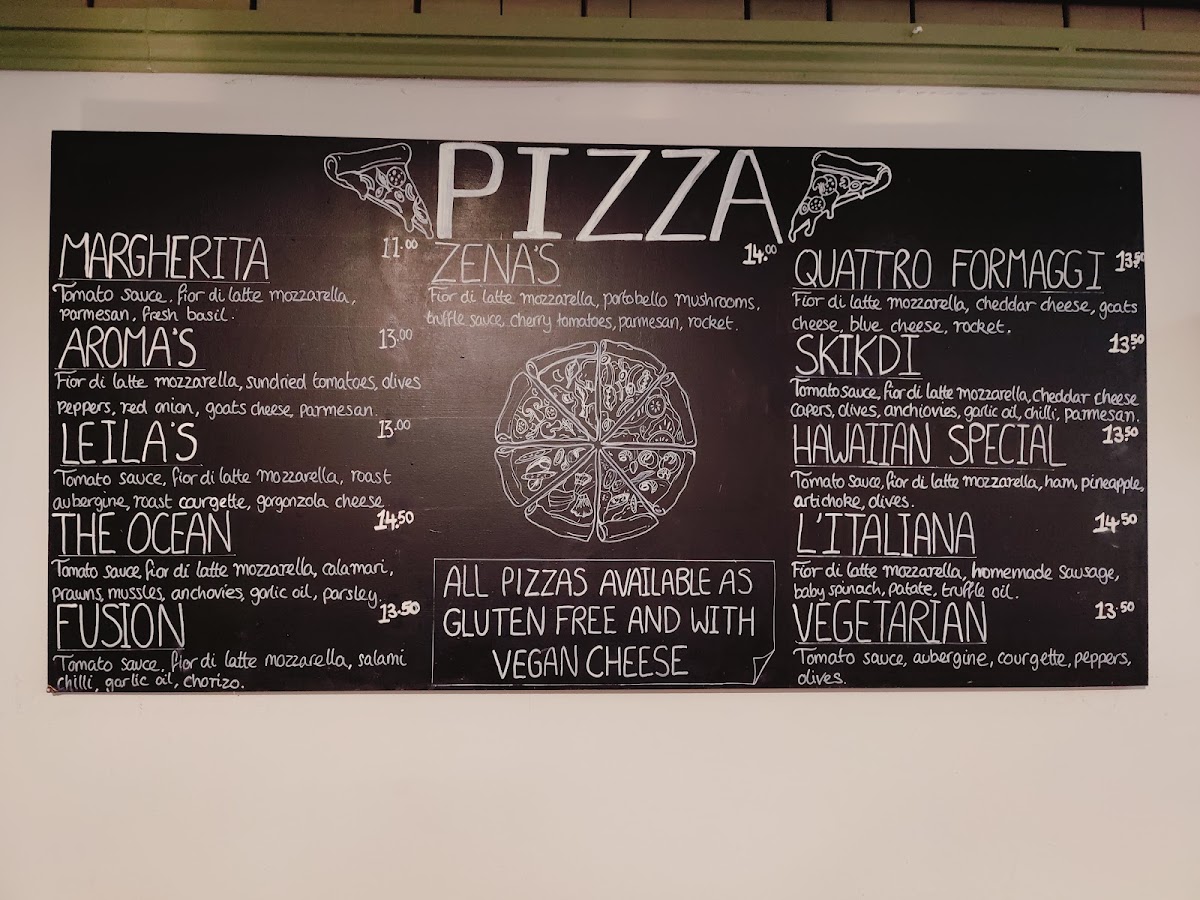 PIZZA
MARGHERITA 11.00
Tomato sauce, fior di latte mozzarella,
parmesan, fresh basil.
AROMA'S 13.00
Fior di latte mozzarella, sundried tomatoes, olives
peppers, red onion, goats cheese, parmesan.
LEILA'S 13.00
Tomato sauce, fior di latte mozzarella, roast
aubergine, roast courgette, gorgonzola cheese
THE OCEAN 14.50
Tomato sauce, fior di latte mozzarella, calamari,
prawns, mussles, anchovies, garlic oil, parsley.
FUSION 13.50
Tomato sauce, fior di latte mozzarella, salami
chilli, garlic oil, chorizo.
ZENA'S 14.00
Fior di latte mozzarella, portobello mushrooms,
truffle sauce, cherry tomatoes, parmesan, rocket.
ALL PIZZAS AVAILABLE AS
GLUTEN FREE AND WITH
VEGAN CHEESE
QUATTRO FORMAGGI 13.50
Fior di latte mozzarella, cheddar cheese, goats
cheese, blue cheese, rocket.
SKIKDI 13.50
Tomato sauce, fior di latte mozzarella, cheddar cheese
capers, olives, anchiovies, garlic oil, chilli, parmesan.
HAWAIIAN SPECIAL 13.50
Tomato sauce, fior di latte mozzarella, ham, pineapple,
artichoke, olives.
L'ITALIANA 14.50
Fior di latte mozzarella, homemade sausage,
baby spinach, patate, truffle oil.
VEGETARIAN 13.50
Tomato sauce, aubergine, courgette, peppers,
olives.